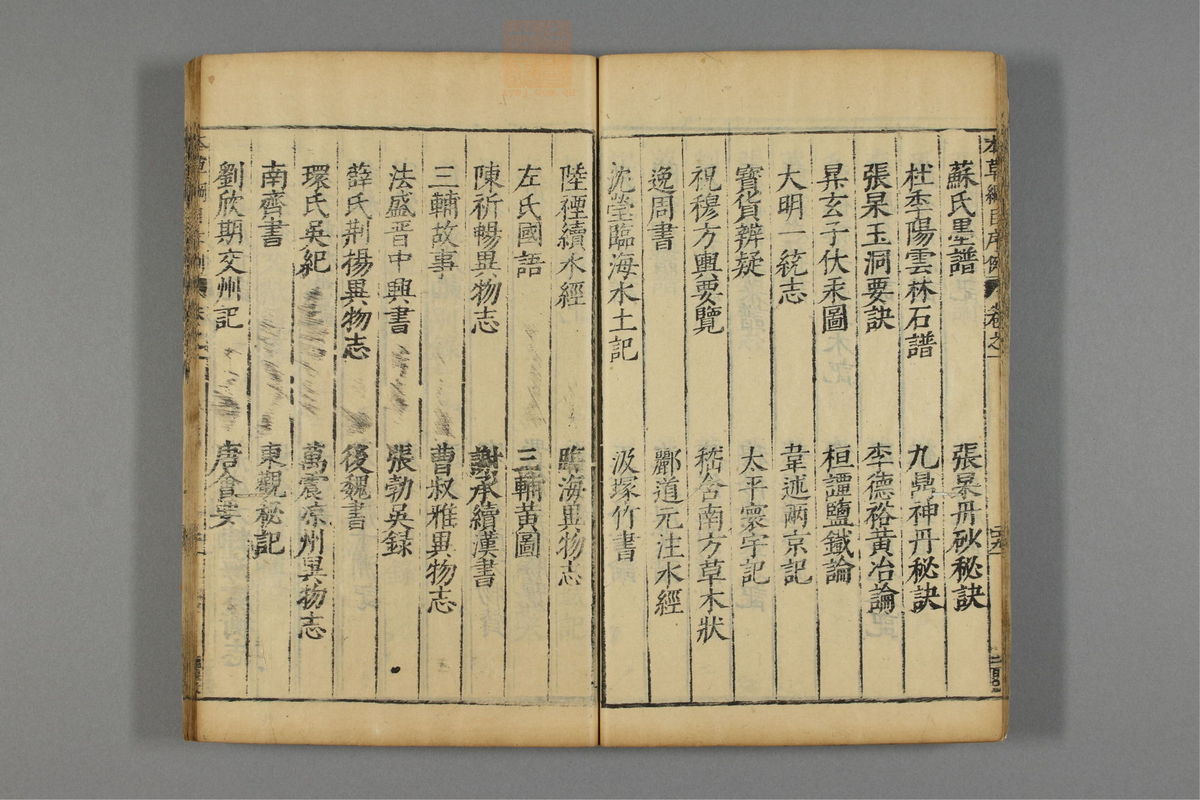 本草綱目序例 卷之一
蘇氏墨譜 張杲丹砂秘訣
杜季陽雲林石譜 九鼎神丹秘訣
張杲玉洞要訣 李德裕黃冶論
昇玄子伏汞圖 桓譚鹽鐵論
大明一統志 韋述兩京記
寶貨辨疑 太平寰宇記
祝穆方輿要覽 嵇含南方草木狀
逸周書 酈道元注水經
沈瑩臨海水土記 汲塚竹書
陸禋續水經 臨海異物志
左氏國語 三輔黃圖
陳祈暢異物志 謝承續漢書
三輔故事 曹叔雅異物志
法盛晋中興書 張勃吳録
薛氏荆揚異物志 後魏書
環氏吳紀 萬震凉州異物志
南齊書 東觀秘記
劉欣期交州記 唐會要